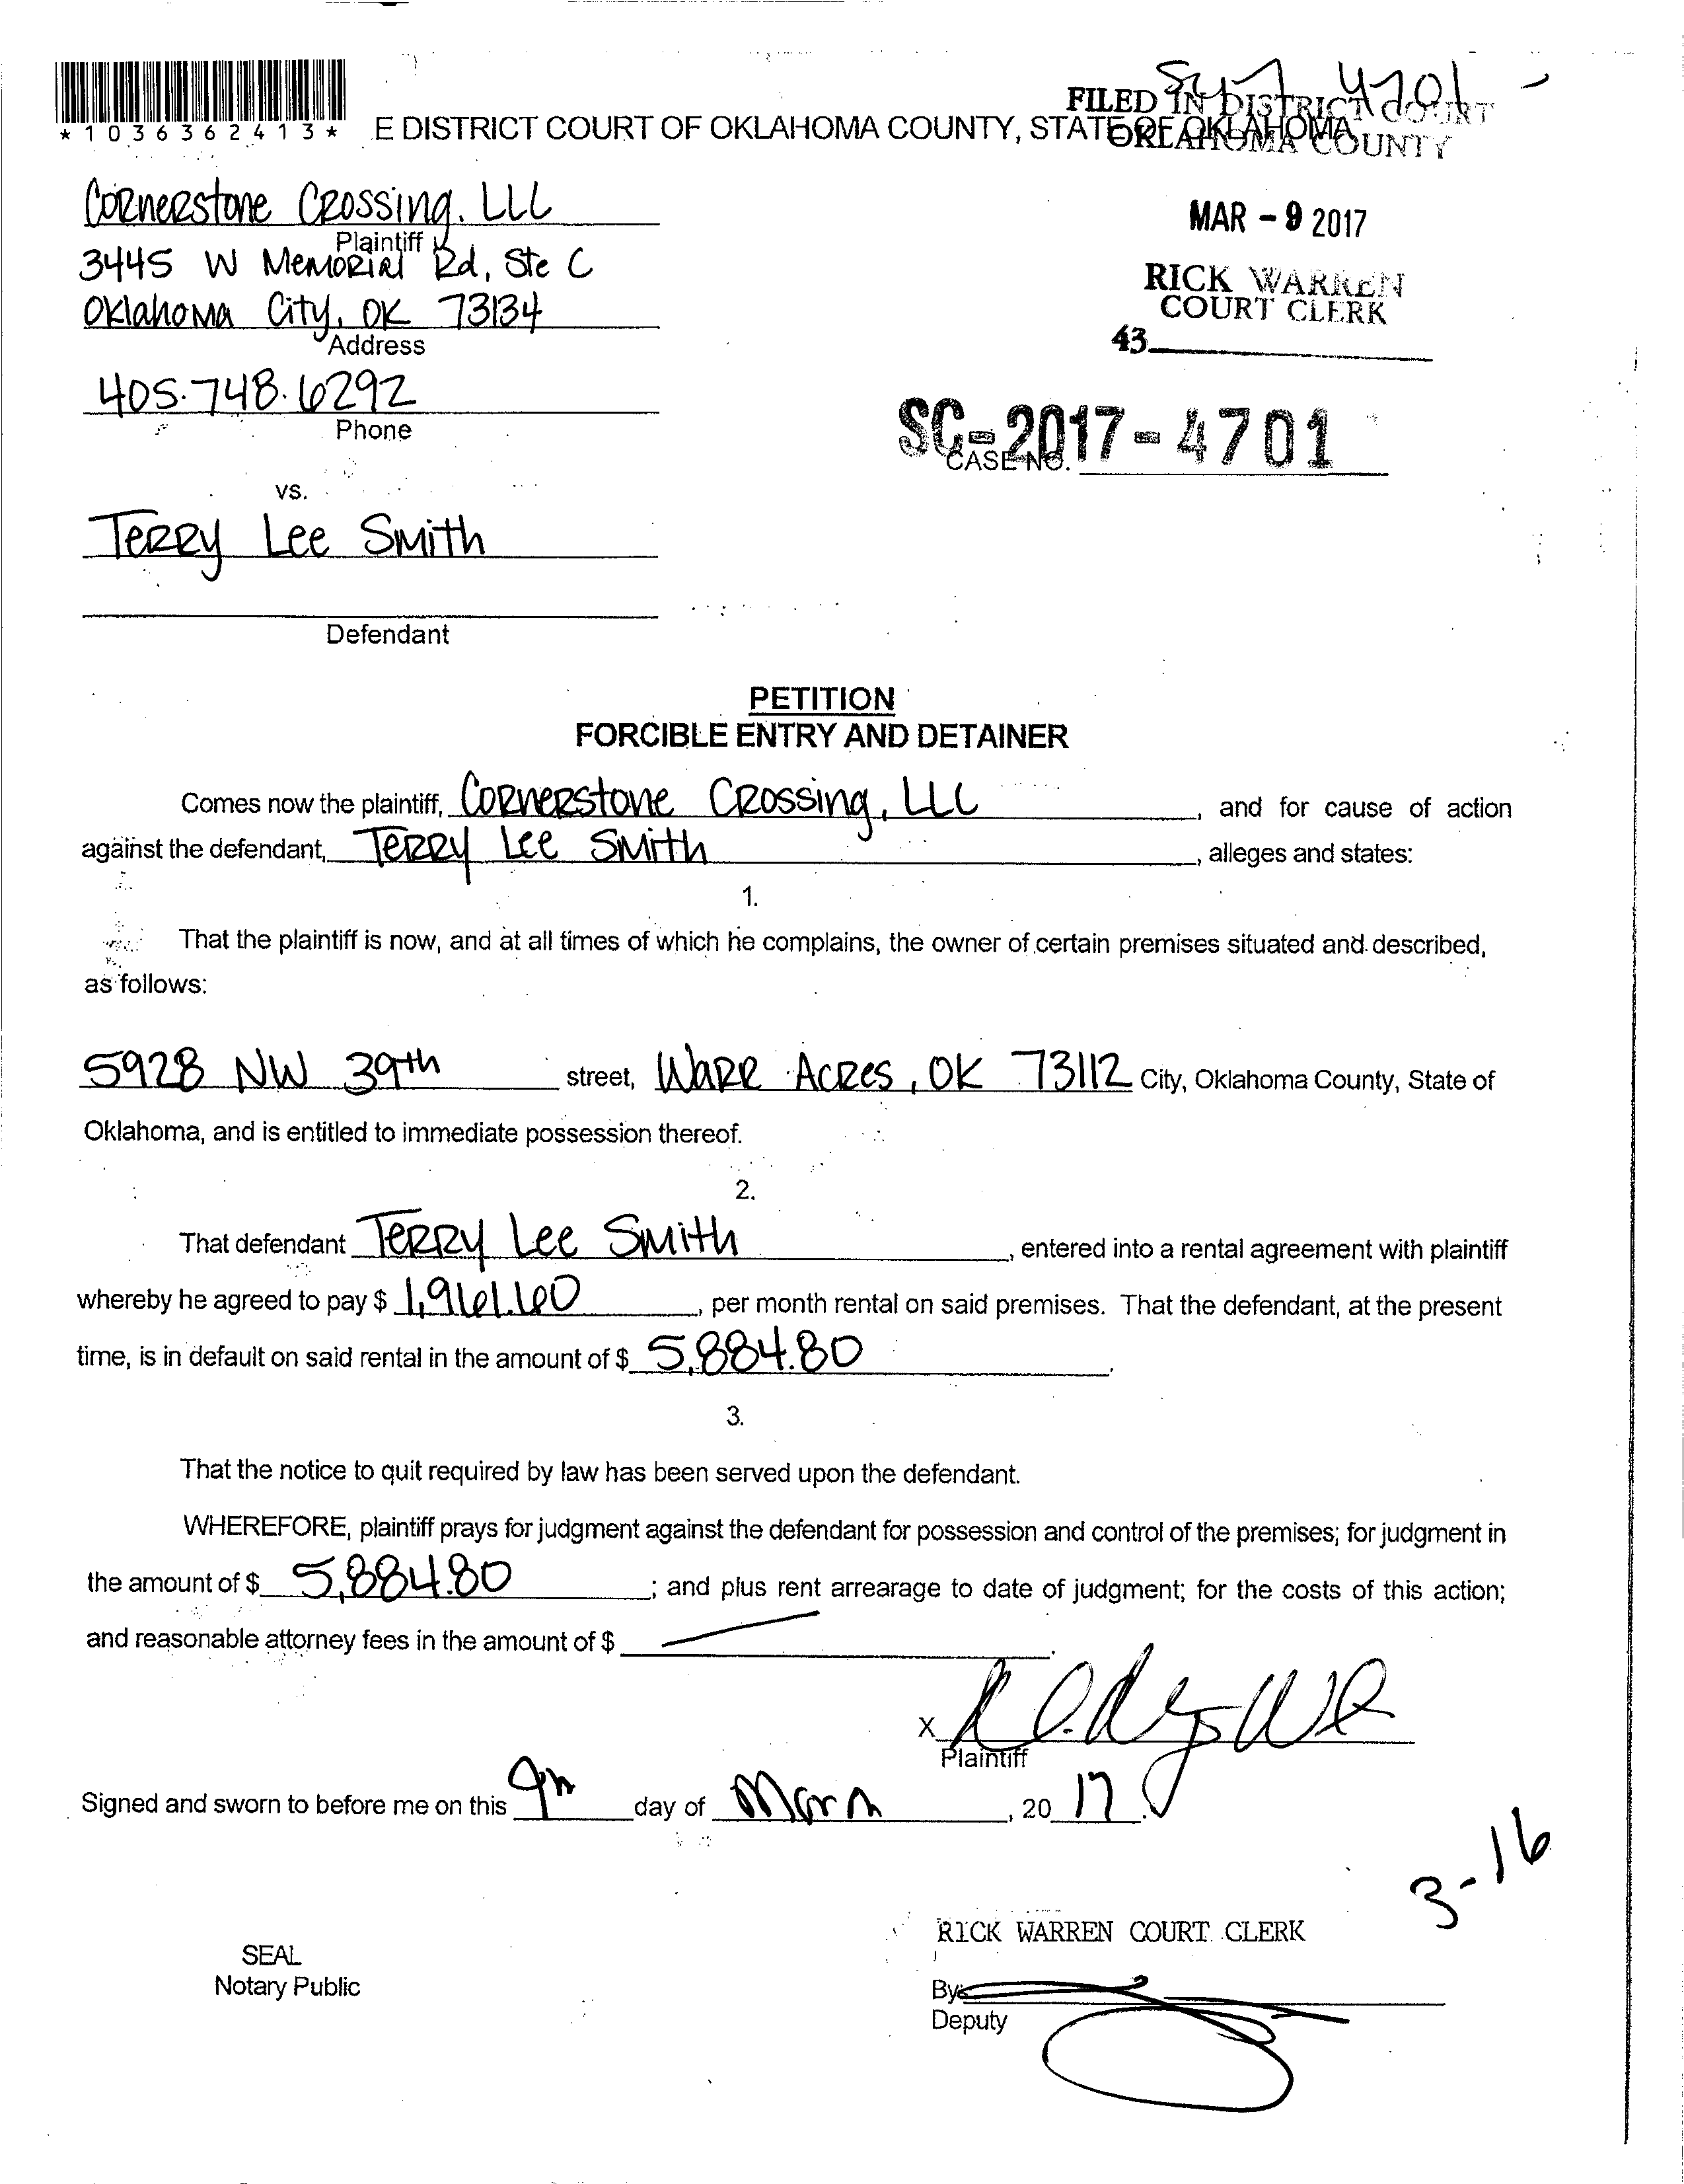 *1036362413*
E DISTRICT COURT OF OKLAHOMA COUNTY, STATE OF OKLAHOMA
4701
FILED IN DISTRICT COURT
OKLAHOMA COUNTY
MAR - 9 2017
RICK WARREN
COURT CLERK
43
Cornerstone Crossing, LLC
Plaintiff
3445 W Memorial Rd, Ste C
Oklahoma City, OK 73134
Address
405.748.6292
Phone
SC-2017-4701
CASE NO.
vs.
Terry Lee Smith
Defendant
PETITION
FORCIBLE ENTRY AND DETAINER
Comes now the plaintiff, Cornerstone Crossing, LLC, and for cause of action
against the defendant, Terry Lee Smith, alleges and states:
1.
That the plaintiff is now, and at all times of which he complains, the owner of certain premises situated and described,
as follows:
5928 NW 39th street, Warr Acres, OK 73112 City, Oklahoma County, State of
Oklahoma, and is entitled to immediate possession thereof.
2.
That defendant Terry Lee Smith, entered into a rental agreement with plaintiff
whereby he agreed to pay $ 1,961.60, per month rental on said premises. That the defendant, at the present
time, is in default on said rental in the amount of $ 5,884.80.
3.
That the notice to quit required by law has been served upon the defendant.
WHEREFORE, plaintiff prays for judgment against the defendant for possession and control of the premises; for judgment in
the amount of $ 5,884.80; and plus rent arrearage to date of judgment; for the costs of this action;
and reasonable attorney fees in the amount of $
X
Plaintiff
Signed and sworn to before me on this 9th day of March, 20 17.
3-16
RICK WARREN COURT CLERK
SEAL
Notary Public
By:
Deputy